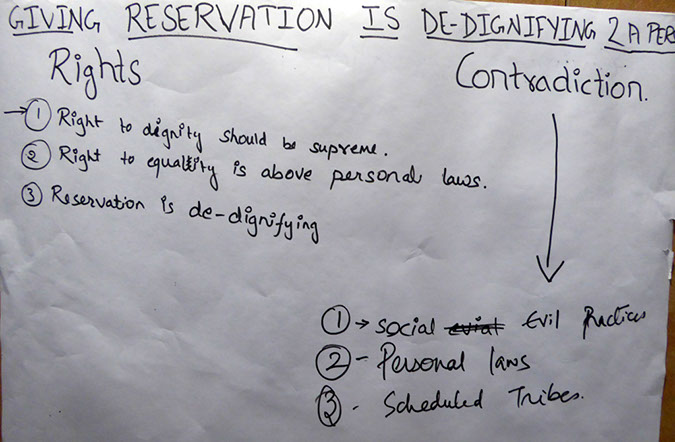 GIVING RESERVATION IS DE-DIGNIFYING 2 A PER
Rights
① Right to dignity should be supreme.
② Right to equality is above personal laws.
③ Reservation is de-dignifying
Contradiction.
① → Social Evil Practices
② - Personal laws
③ - Scheduled Tribes.